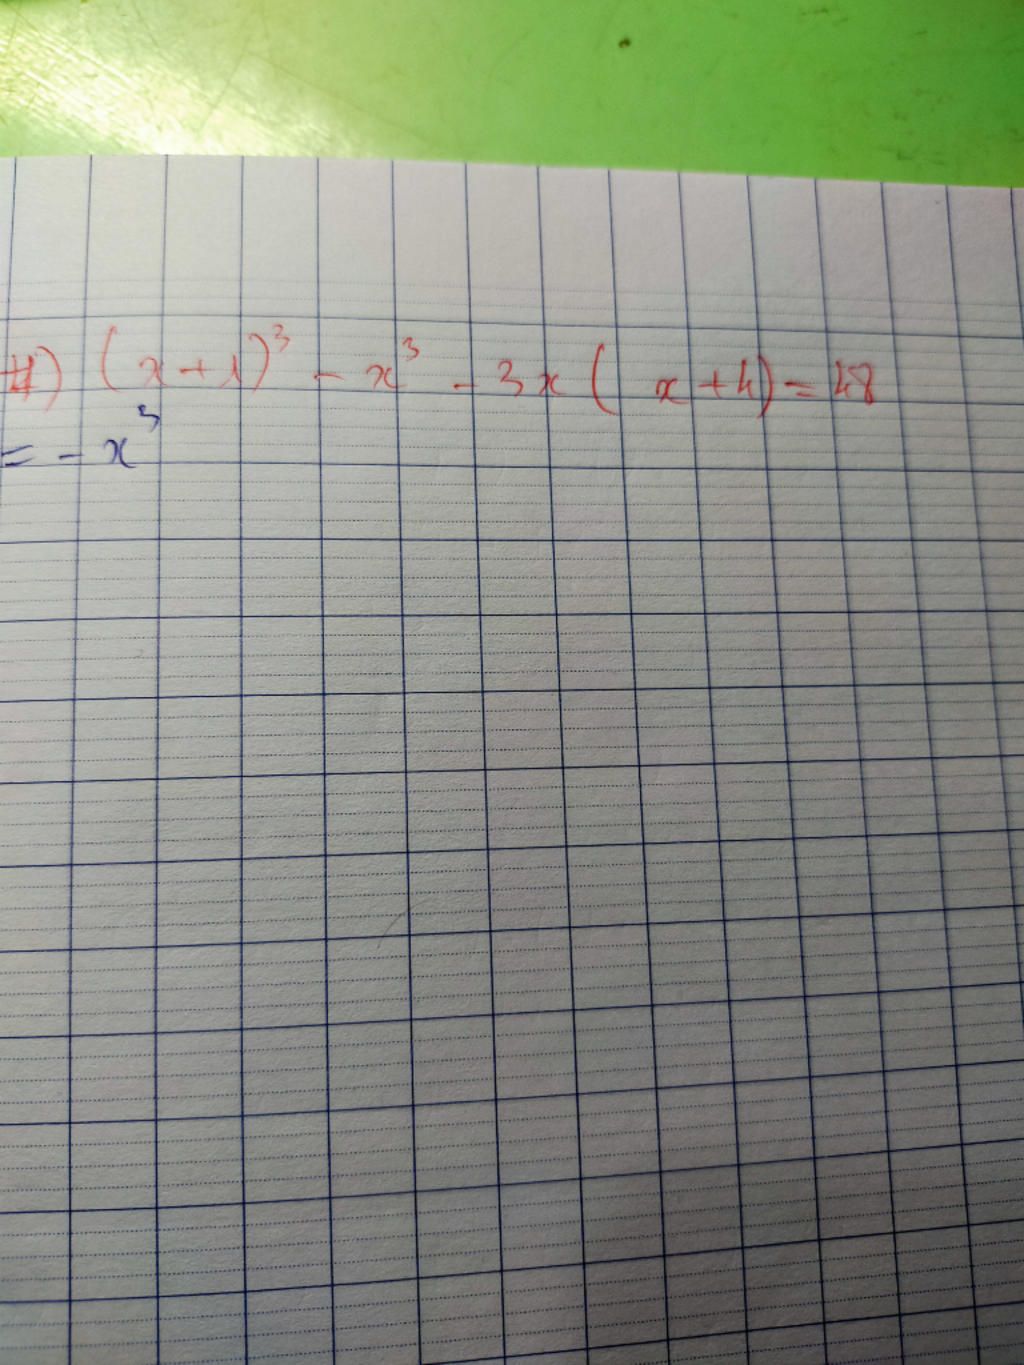 4) (x+1)³ - x³ - 3x ( x+4) = 48
= - x³